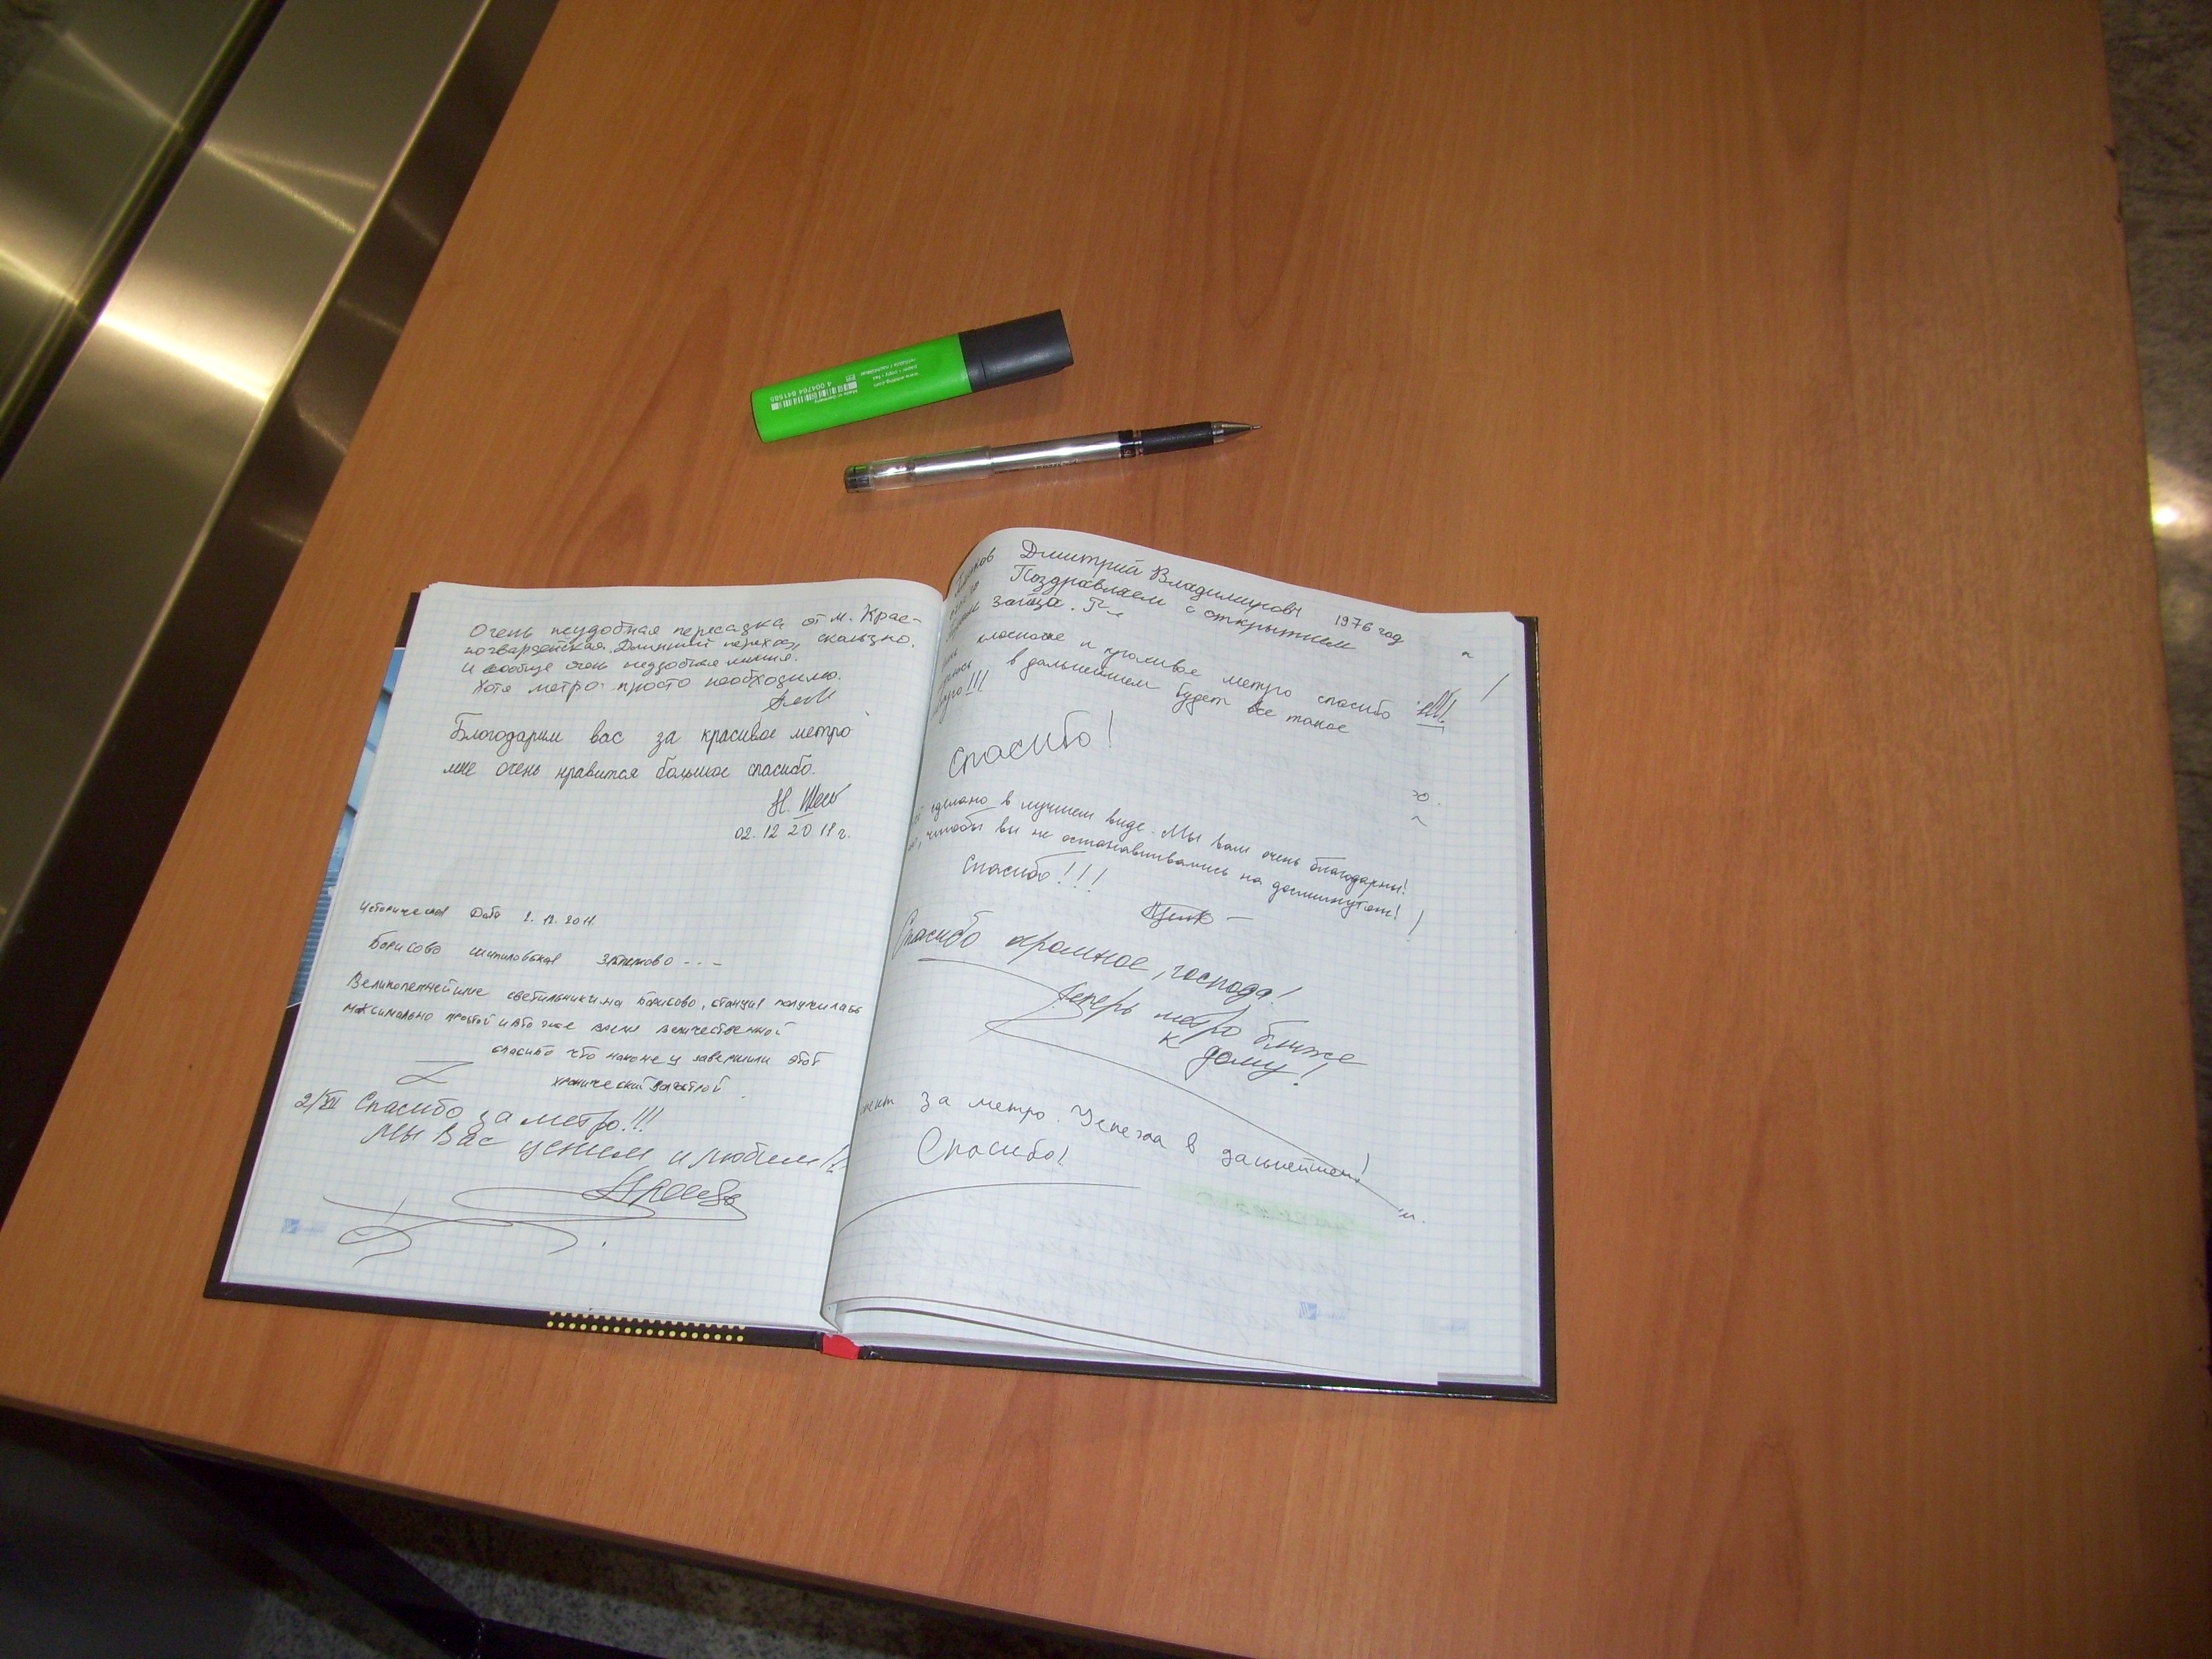 www.edding.com
Made in Germany
4 004764 841585
Очень неудобная пересадка от м. Крас-
ногвардейская. Длинный переход, скользко.
И вообще очень неудобная линия.
Хотя метро просто необходимо.
Благодарим вас за красивое метро
мне очень нравится большое спасибо.
02.12 2011 г.
Историческая Дата 2.12.2011
Борисово Шипиловская Зябликово - - -
Великолепнейшие светильники на Борисово, станция получилась
максимально простой и в то же время величественной
спасибо что наконец завершили этот
хронический долгострой
2/XII Спасибо за метро!!!
Мы Вас ценим и любим!!
Дмитрий Владимирович 1976 год
Поздравляем с открытием
классное и красивое метро спасибо
в дальнейшем будет все такое
Спасибо!
сделано в лучшем виде. Мы вам очень благодарны!
чтобы вы не останавливались на достигнутом!
Спасибо!!!
Спасибо огромное, господа!
Теперь метро ближе
к дому!
за метро. Успеха в дальнейшем!
Спасибо!